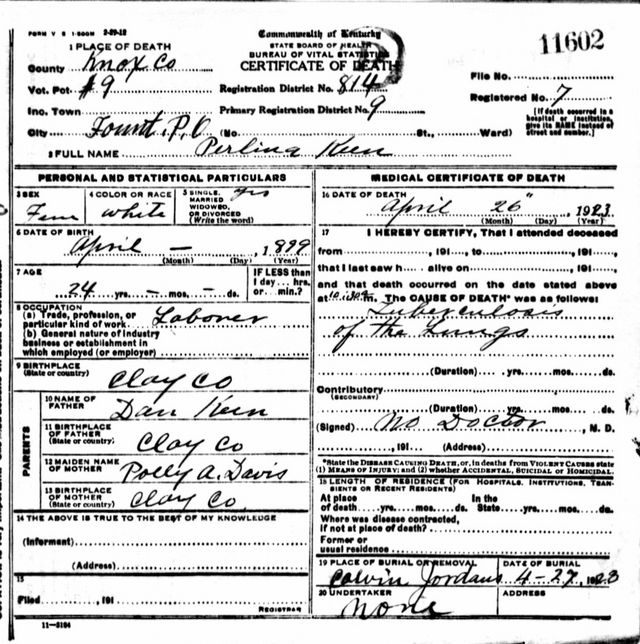 FORM V S 1-500M 2-29-12
Commonwealth of Kentucky
STATE BOARD OF HEALTH
BUREAU OF VITAL STATISTICS
CERTIFICATE OF DEATH
11602
1 PLACE OF DEATH
County Knox Co
Vot. Pct #9
Registration District No. 814
File No.
Inc. Town
Primary Registration District No. 9
Registered No. 7
City Fount. P.O (No. St., Ward)
[If death occurred in a hospital or institution, give its NAME instead of street and number.]
2 FULL NAME Perlina Keen
PERSONAL AND STATISTICAL PARTICULARS
3 SEX Fem
4 COLOR OR RACE white
5 SINGLE, MARRIED WIDOWED, OR DIVORCED (Write the word) yes
6 DATE OF BIRTH
April – , 1899
(Month) (Day) (Year)
7 AGE
24 yrs. – mos. – ds.
IF LESS than 1 day... hrs. or min.?
8 OCCUPATION
(a) Trade, profession, or particular kind of work Laborer
(b) General nature of industry business or establishment in which employed (or employer)
9 BIRTHPLACE
(State or country) Clay Co
PARENTS
10 NAME OF FATHER Dan Keen
11 BIRTHPLACE OF FATHER (State or country) Clay Co
12 MAIDEN NAME OF MOTHER Polly A. Davis
13 BIRTHPLACE OF MOTHER (State or country) Clay Co
14 THE ABOVE IS TRUE TO THE BEST OF MY KNOWLEDGE
(Informant)
(Address)
15
Filed , 191
REGISTRAR
11-5184
MEDICAL CERTIFICATE OF DEATH
16 DATE OF DEATH
April 26" , 1923
(Month) (Day) (Year)
17 I HEREBY CERTIFY, That I attended deceased
from , 191 , to , 191
that I last saw h alive on , 191
and that death occurred on the date stated above
at 10:30 m. The CAUSE OF DEATH* was as follows:
Tuberculosis
of the Lungs
(Duration) yrs. mos. ds.
Contributory
(SECONDARY)
(Duration) yrs. mos. ds.
(Signed) No Doctor , M. D.
, 191 (Address)
*State the DISEASE CAUSING DEATH, or, in deaths from VIOLENT CAUSES state (1) MEANS OF INJURY; and (2) whether ACCIDENTAL, SUICIDAL OR HOMICIDAL.
18 LENGTH OF RESIDENCE (FOR HOSPITALS, INSTITUTIONS, TRANSIENTS OR RECENT RESIDENTS)
At place of death yrs. mos. ds. In the State yrs. mos. ds.
Where was disease contracted, if not at place of death?
Former or usual residence
19 PLACE OF BURIAL OR REMOVAL Calvin Jordans
DATE OF BURIAL 4-27, 1923
20 UNDERTAKER none
ADDRESS